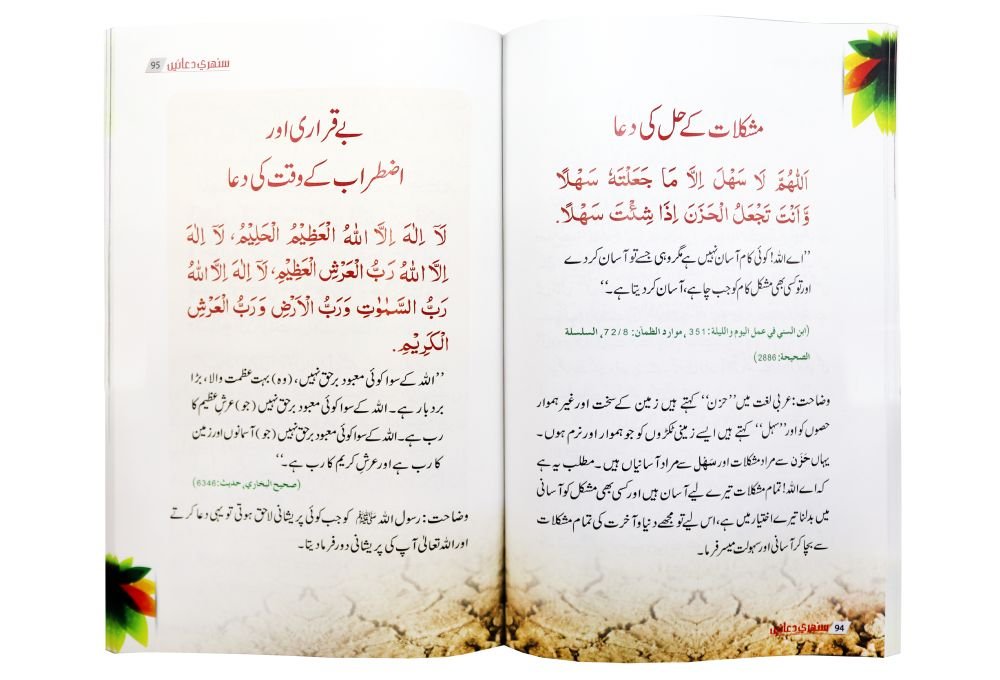 مشکلات کے حل کی دعا
اَللّٰهُمَّ لَا سَهْلَ اِلَّا مَا جَعَلْتَهٗ سَهْلًا
وَّاَنْتَ تَجْعَلُ الْحَزَنَ اِذَا شِئْتَ سَهْلًا.
’’اے اللہ! کوئی کام آسان نہیں ہے مگر وہی جسے تو آسان کر دے
اور تو کسی بھی مشکل کام کو جب چاہے، آسان کر دیتا ہے۔‘‘
(ابن السني في عمل اليوم والليلة: 351، موارد الظمآن: 72/8، السلسلة
الصحيحة: 2886)
وضاحت: عربی لغت میں ’’حزن‘‘ کہتے ہیں زمین کے سخت اور غیر ہموار
حصوں کو اور ’’سہل‘‘ کہتے ہیں ایسے زمینی ٹکڑوں کو جو ہموار اور نرم ہوں۔
یہاں حَزَن سے مراد مشکلات اور سَهْل سے مراد آسانیاں ہیں۔ مطلب یہ ہے
کہ اے اللہ! تمام مشکلات تیرے لیے آسان ہیں اور کسی بھی مشکل کو آسانی
میں بدلنا تیرے اختیار میں ہے، اس لیے تو مجھے دنیا و آخرت کی تمام مشکلات
سے بچا کر آسانی اور سہولت میسر فرما۔
94 سنهري دعائيں
95 سنهري دعائيں
بے قراری اور
اضطراب کے وقت کی دعا
لَآ اِلٰهَ اِلَّا اللهُ الْعَظِيْمُ الْحَلِيْمُ، لَآ اِلٰهَ
اِلَّا اللهُ رَبُّ الْعَرْشِ الْعَظِيْمِ، لَآ اِلٰهَ اِلَّا اللهُ
رَبُّ السَّمٰوٰتِ وَرَبُّ الْاَرْضِ وَرَبُّ الْعَرْشِ
الْكَرِيْمِ.
’’اللہ کے سوا کوئی معبود برحق نہیں، (وہ) بہت عظمت والا، بڑا
بردبار ہے۔ اللہ کے سوا کوئی معبود برحق نہیں (جو) عرش عظیم کا
رب ہے۔ اللہ کے سوا کوئی معبود برحق نہیں (جو) آسمانوں اور زمین
کا رب ہے اور عرش کریم کا رب ہے۔‘‘
(صحيح البخاري، حديث: 6346)
وضاحت: رسول اللہ ﷺ کو جب کوئی پریشانی لاحق ہوتی تو یہی دعا کرتے
اور اللہ تعالیٰ آپ کی پریشانی دور فرما دیتا۔